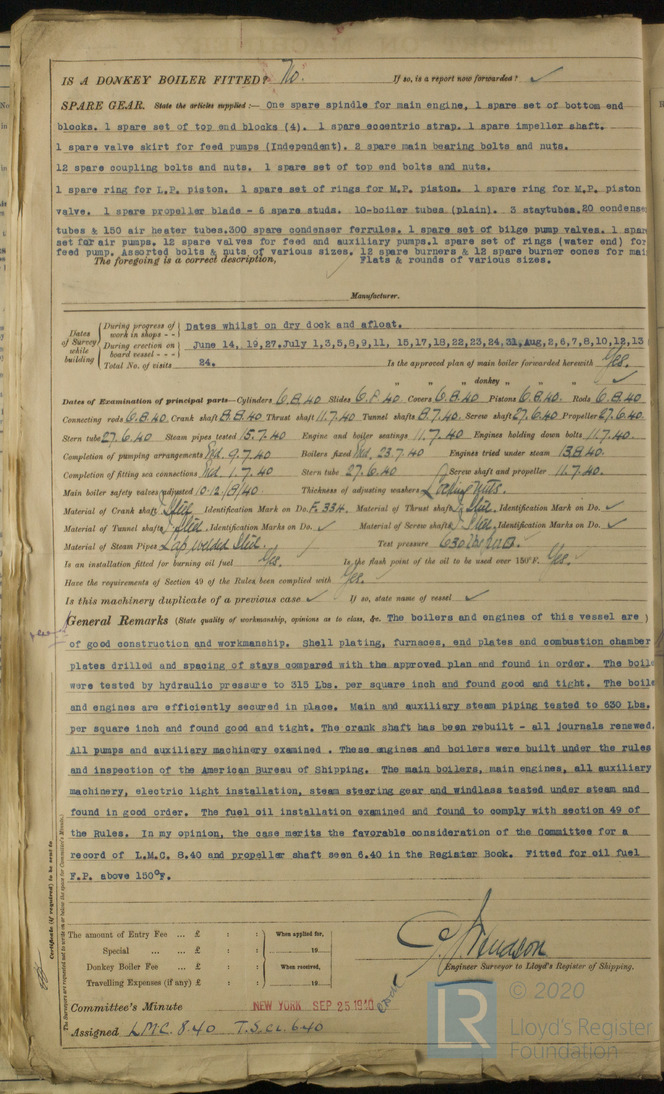 IS A DONKEY BOILER FITTED? No. If so, is a report now forwarded? ✓
SPARE GEAR. State the articles supplied:— One spare spindle for main engine, 1 spare set of bottom end
blocks. 1 spare set of top end blocks (4). 1 spare eccentric strap. 1 spare impeller shaft.
1 spare valve skirt for feed pumps (Independent). 2 spare main bearing bolts and nuts.
12 spare coupling bolts and nuts. 1 spare set of top end bolts and nuts.
1 spare ring for L.P. piston. 1 spare set of rings for M.P. piston. 1 spare ring for M.P. piston
valve. 1 spare propeller blade - 6 spare studs. 10-boiler tubes (plain). 3 staytubes, 20 condense
tubes & 150 air heater tubes. 300 spare condenser ferrules. 1 spare set of bilge pump valves. 1 spar
set for air pumps. 12 spare valves for feed and auxiliary pumps. 1 spare set of rings (water end) for
feed pump. Assorted bolts & nuts of various sizes. 12 spare burners & 12 spare burner cones for mai
The foregoing is a correct description, Flats & rounds of various sizes.
Manufacturer.
Dates of Survey while building
During progress of work in shops - - Dates whilst on dry dock and afloat.
During erection on board vessel - - - June 14, 19, 27, July 1,3,5,8,9,11, 15,17,18,22,23,24,31, Aug, 2,6,7,8,10,12,13
Total No. of visits 24. Is the approved plan of main boiler forwarded herewith Yes.
" " " donkey " " " ✓
Dates of Examination of principal parts—Cylinders 6.8.40 Slides 6.8.40 Covers 6.8.40 Pistons 6.8.40. Rods 6.8.40
Connecting rods 6.8.40. Crank shaft 8.8.40 Thrust shaft 11.7.40 Tunnel shafts 8.7.40. Screw shaft 27.6.40 Propeller 27.6.40.
Stern tube 27.6.40 Steam pipes tested 15.7.40 Engine and boiler seatings 11.7.40 Engines holding down bolts 11.7.40.
Completion of pumping arrangements 9.7.40 Boilers fixed 23.7.40 Engines tried under steam 13.8.40
Completion of fitting sea connections 1.7.40 Stern tube 27.6.40 Screw shaft and propeller 11.7.40.
Main boiler safety valves adjusted 10-12/8/40. Thickness of adjusting washers Locking Nuts.
Material of Crank shaft Steel Identification Mark on Do. F.334. Material of Thrust shaft Steel, Identification Mark on Do. ✓
Material of Tunnel shafts Steel. Identification Marks on Do. ✓ Material of Screw shafts Steel, Identification Marks on Do. ✓
Material of Steam Pipes Lap welded Steel. Test pressure 630 lbs per □.
Is an installation fitted for burning oil fuel Yes. Is the flash point of the oil to be used over 150°F. Yes.
Have the requirements of Section 49 of the Rules been complied with Yes.
Is this machinery duplicate of a previous case ✓ If so, state name of vessel ✓
General Remarks (State quality of workmanship, opinions as to class, &c. The boilers and engines of this vessel are )
of good construction and workmanship. Shell plating, furnaces, end plates and combustion chamber
plates drilled and spacing of stays compared with the approved plan and found in order. The boile
were tested by hydraulic pressure to 315 Lbs. per square inch and found good and tight. The boile
and engines are efficiently secured in place. Main and auxiliary steam piping tested to 630 Lbs.
per square inch and found good and tight. The crank shaft has been rebuilt - all journals renewed.
All pumps and auxiliary machinery examined . These engines and boilers were built under the rules
and inspection of the American Bureau of Shipping. The main boilers, main engines, all auxiliary
machinery, electric light installation, steam steering gear and windlass tested under steam and
found in good order. The fuel oil installation examined and found to comply with section 49 of
the Rules. In my opinion, the case merits the favorable consideration of the Committee for a
record of L.M.C. 8.40 and propeller shaft seen 6.40 in the Register Book. Fitted for oil fuel
F.P. above 150°F.
Certificate (if required) to be sent to
The Surveyors are requested not to write on or below the space for Committee's Minute.
The amount of Entry Fee ... £ : : When applied for,
Special ... ... £ : : 19
Donkey Boiler Fee ... £ : : When received,
Travelling Expenses (if any) £ : : 19
Engineer Surveyor to Lloyd's Register of Shipping.
Committee's Minute NEW YORK SEP 25 1940
Assigned LMC. 8.40 T.S.CL. 6.40
LR © 2020
Lloyd's Register
Foundation